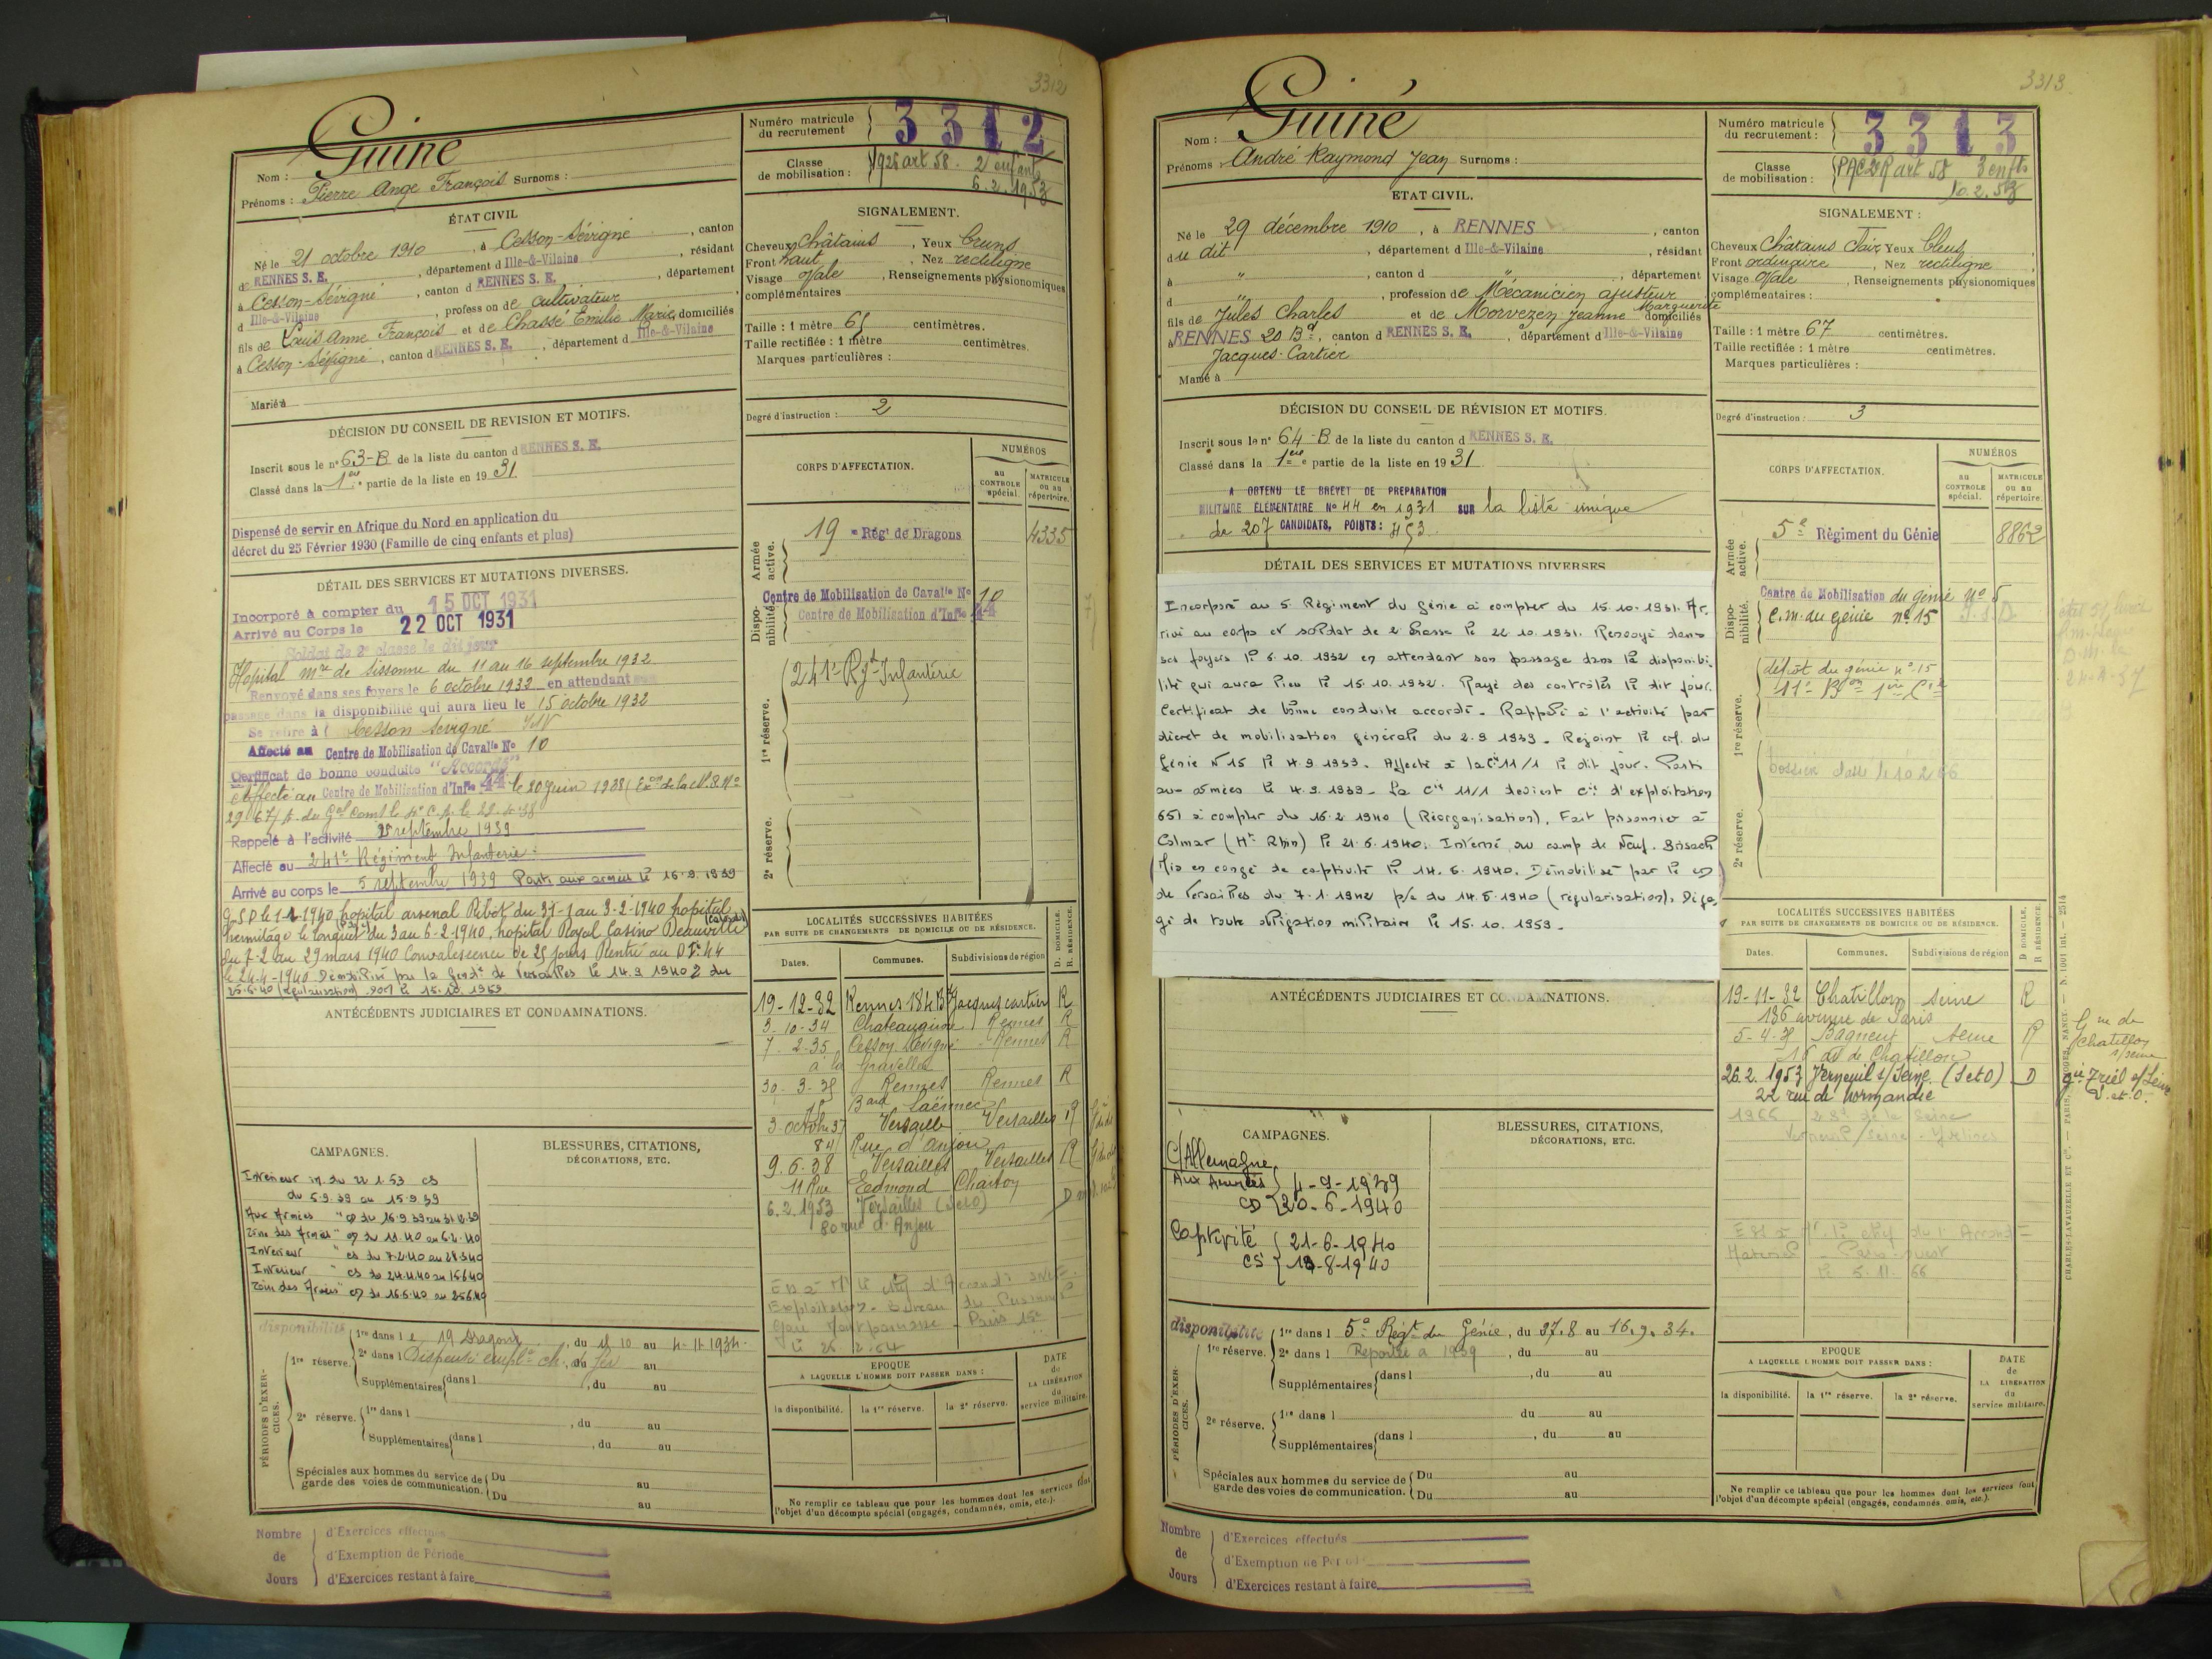 3312
Guiné
Nom :
Prénoms : Pierre Ange François Surnoms :
ÉTAT CIVIL
Né le 21 octobre 1910, à Cesson-Sévigné, canton
de RENNES S. E., département d Ille-&-Vilaine, résidant
à Cesson-Sévigné, canton d RENNES S. E., département
d Ille-&-Vilaine, profession de cultivateur
fils de Louis Anne François et de Chassé Emilie Marie, domiciliés
à Cesson-Sévigné, canton d RENNES S. E., département d Ille-&-Vilaine
Marié à
DÉCISION DU CONSEIL DE REVISION ET MOTIFS.
Inscrit sous le n° 63-B de la liste du canton d RENNES S. E.
Classé dans la 1ere partie de la liste en 1931
Dispensé de servir en Afrique du Nord en application du
décret du 25 Février 1930 (Famille de cinq enfants et plus)
DÉTAIL DES SERVICES ET MUTATIONS DIVERSES.
Incorporé à compter du 15 OCT 1931
Arrivé au Corps le 22 OCT 1931
Soldat de 2e classe le dit jour
Hopital mre de Sissonne du 11 au 16 septembre 1932
Renvoyé dans ses foyers le 6 octobre 1932 en attendant
passage dans la disponibilité qui aura lieu le 15 octobre 1932
Se retire à Cesson Sevigné I&V
Affecté au Centre de Mobilisation de Cavalie No 10
Certificat de bonne conduite "Accordé"
Affecté au Centre de Mobilisation d'Infie 44 le 20 juin 1938 (Exon de la M.8. No
Rappelé à l'activité 2 septembre 1939
Affecté au 241e Régiment Infanterie
Arrivé au corps le 5 septembre 1939 Parti aux armées le 16-9-1939
hopital arsenal Ribot du 31-1 au 3-2-1940 hopital
hermitage le conquet du 3 au 6-2-1940, hopital Royal Casino Deauville (Calvados)
du 7-2 au 29 mars 1940 Convalescence de 25 jours Rentré au DI 44
le 24-4-1940 Démobilisé par la Gendie de Versailles le 14.9 1940 du
25.6.40 (régularisation) le 15.10.1959
ANTÉCÉDENTS JUDICIAIRES ET CONDAMNATIONS.
CAMPAGNES.
BLESSURES, CITATIONS,
DÉCORATIONS, ETC.
Intérieur
du 5.9.39 au 15.9.39
Aux Armées
Intérieur
Intérieur
disponibilité
PÉRIODES D'EXERCICES.
1re réserve. 1re dans le 19 Dragons, du 15 10 au 4-11 1934.
2e dans l Dispensé
Supplémentaires dans l , du au
2e réserve. 1re dans l , du au
Supplémentaires dans l , du au
Spéciales aux hommes du service de garde des voies de communication. Du au
Du au
Nombre de Jours
d'Exercices effectués
d'Exemption de Période
d'Exercices restant à faire
Numéro matricule du recrutement 3312
Classe de mobilisation : 1926 art 58. 2 enfants
6.2.1953
SIGNALEMENT.
Cheveux châtains, Yeux bruns
Front haut, Nez rectiligne
Visage Ovale, Renseignements physionomiques
complémentaires
Taille : 1 mètre 65 centimètres.
Taille rectifiée : 1 mètre centimètres.
Marques particulières :
Degré d'instruction : 2
CORPS D'AFFECTATION.
NUMÉROS
au CONTROLE spécial.
MATRICULE ou au répertoire.
Armée active.
19 e Régt de Dragons 4335
Disponibilité.
Centre de Mobilisation de Cavalie No 10
Centre de Mobilisation d'Infie 44
1re réserve.
241e Rgt Infanterie
2e réserve.
LOCALITÉS SUCCESSIVES HABITÉES
PAR SUITE DE CHANGEMENTS DE DOMICILE OU DE RÉSIDENCE.
D. DOMICILE. R. RÉSIDENCE.
Dates. Communes. Subdivisions de région
19-12-32 Rennes 184 Bd Jacques cartier R
3-10-34 Chateaugiron Rennes R
7-2-35 Cesson Sévigné Rennes R
à la Gravelles
30-3-35 Rennes Rennes R
Bard Laënnec
3 octobre 37 Versailles Versailles R
84 Rue d'anjou
9.6.38 Versailles Versailles R
11 Rue Edmond Charton
6.2.1953 Versailles (SetO) D
80 rue d'Anjou
Gare Montparnasse - Paris 15e
EPOQUE
A LAQUELLE L'HOMME DOIT PASSER DANS :
la disponibilité. la 1re réserve. la 2e réserve.
DATE de LA LIBÉRATION du service militaire.
Ne remplir ce tableau que pour les hommes dont les services font
l'objet d'un décompte spécial (engagés, condamnés, omis, etc.).
3313
Guiné
Nom :
Prénoms : André Raymond Jean Surnoms :
ETAT CIVIL.
Né le 29 décembre 1910, à RENNES, canton
du dit, département d Ille-&-Vilaine, résidant
à ", canton d ", département
d ", profession de Mécanicien ajusteur
fils de Jules Charles et de Morvezen Jeanne Marguerite domiciliés
à RENNES 20 Bd, canton d RENNES S. E., département d Ille-&-Vilaine
Jacques-Cartier
Marié à
DÉCISION DU CONSEIL DE RÉVISION ET MOTIFS.
Inscrit sous le n° 64-B de la liste du canton d RENNES S. E.
Classé dans la 1ere partie de la liste en 1931
A OBTENU LE BREVET DE PREPARATION
MILITAIRE ÉLÉMENTAIRE No 44 en 1931 SUR la liste unique
de 207 CANDIDATS, POINTS: 453
DÉTAIL DES SERVICES ET MUTATIONS DIVERSES
Incorporé au 5. Régiment du génie à compter du 15.10.1931. Ar.
rivé au corps et soldat de 2. classe le 22.10.1931. Renvoyé dans
ses foyers le 6.10.1932 en attendant son passage dans la disponibi.
lité qui aura lieu le 15.10.1932. Rayé des contrôles le dit jour.
Certificat de bonne conduite accordé. Rappelé à l'activité par
décret de mobilisation générale du 2.9.1939. Rejoint le c.m. du
Génie N°15 le 4.9.1939. Affecté à la Cie 11/1 le dit jour. Parti
aux armées le 4.9.1939. La Cie 11/1 devient Cie d'exploitation
651 à compter du 16.2.1940 (Réorganisation). Fait prisonnier à
Colmar (Ht Rhin) le 21.6.1940. Interné au camp de Neuf. Brisach
Mis en congé de captivité le 14.6.1940. Démobilisé par le CD
de Versailles du 7.1.1942 p/c du 14.6.1940 (régularisation). Déga.
gé de toute obligation militaire le 15.10.1959.
ANTÉCÉDENTS JUDICIAIRES ET CONDAMNATIONS.
CAMPAGNES.
BLESSURES, CITATIONS,
DÉCORATIONS, ETC.
C/Allemagne
Aux Armées 4-9-1939
CD 20-6-1940
Captivité 21-6-1940
CS 13-8-1940
disponibilité
PÉRIODES D'EXERCICES.
1re réserve. 1re dans l 5e Régt du Génie, du 27.8 au 16.9.34.
2e dans l Reportée à 1939, du au
Supplémentaires dans l , du au
2e réserve. 1re dans l du au
Supplémentaires dans l , du au
Spéciales aux hommes du service de garde des voies de communication. Du au
Du au
Nombre de Jours
d'Exercices effectués
d'Exemption de Période
d'Exercices restant à faire
Numéro matricule du recrutement : 3313
Classe de mobilisation : art 58 3 enfts
10.2.53
SIGNALEMENT :
Cheveux Châtains clair Yeux bleus
Front ordinaire, Nez rectiligne
Visage Ovale, Renseignements physionomiques
complémentaires :
Taille : 1 mètre 67 centimètres.
Taille rectifiée : 1 mètre centimètres.
Marques particulières :
Degré d'instruction : 3
CORPS D'AFFECTATION.
NUMÉROS
au CONTROLE spécial.
MATRICULE ou au répertoire.
Armée active.
5e Régiment du Génie 8862
Disponibilité.
Centre de Mobilisation du génie no 5
C.m. du Génie no 15
1re réserve.
dépôt du génie no 15
11e Bon 1ère Cie
2e réserve.
LOCALITÉS SUCCESSIVES HABITÉES
PAR SUITE DE CHANGEMENTS DE DOMICILE OU DE RÉSIDENCE.
D. DOMICILE. R. RÉSIDENCE.
Dates. Communes. Subdivisions de région
19-11-32 Chatillon Seine R
136 avenue de Paris
Bagneux Seine R
de Chatillon
26.2.1953 Verneuil s/Seine (SetO) D
22 rue de Normandie
1966
Verneuil s/Seine - Yvelines
le 5.11.66
Gie de
Chatillon
s/Seine
Gie Triel s/Seine
S. et O.
CHARLES-LAVAUZELLE ET Cie. — PARIS, LIMOGES, NANCY. — N. 1001 int. — 2514
EPOQUE
A LAQUELLE L'HOMME DOIT PASSER DANS :
la disponibilité. la 1re réserve. la 2e réserve.
DATE de LA LIBÉRATION du service militaire.
Ne remplir ce tableau que pour les hommes dont les services font
l'objet d'un décompte spécial (engagés, condamnés, omis, etc.).